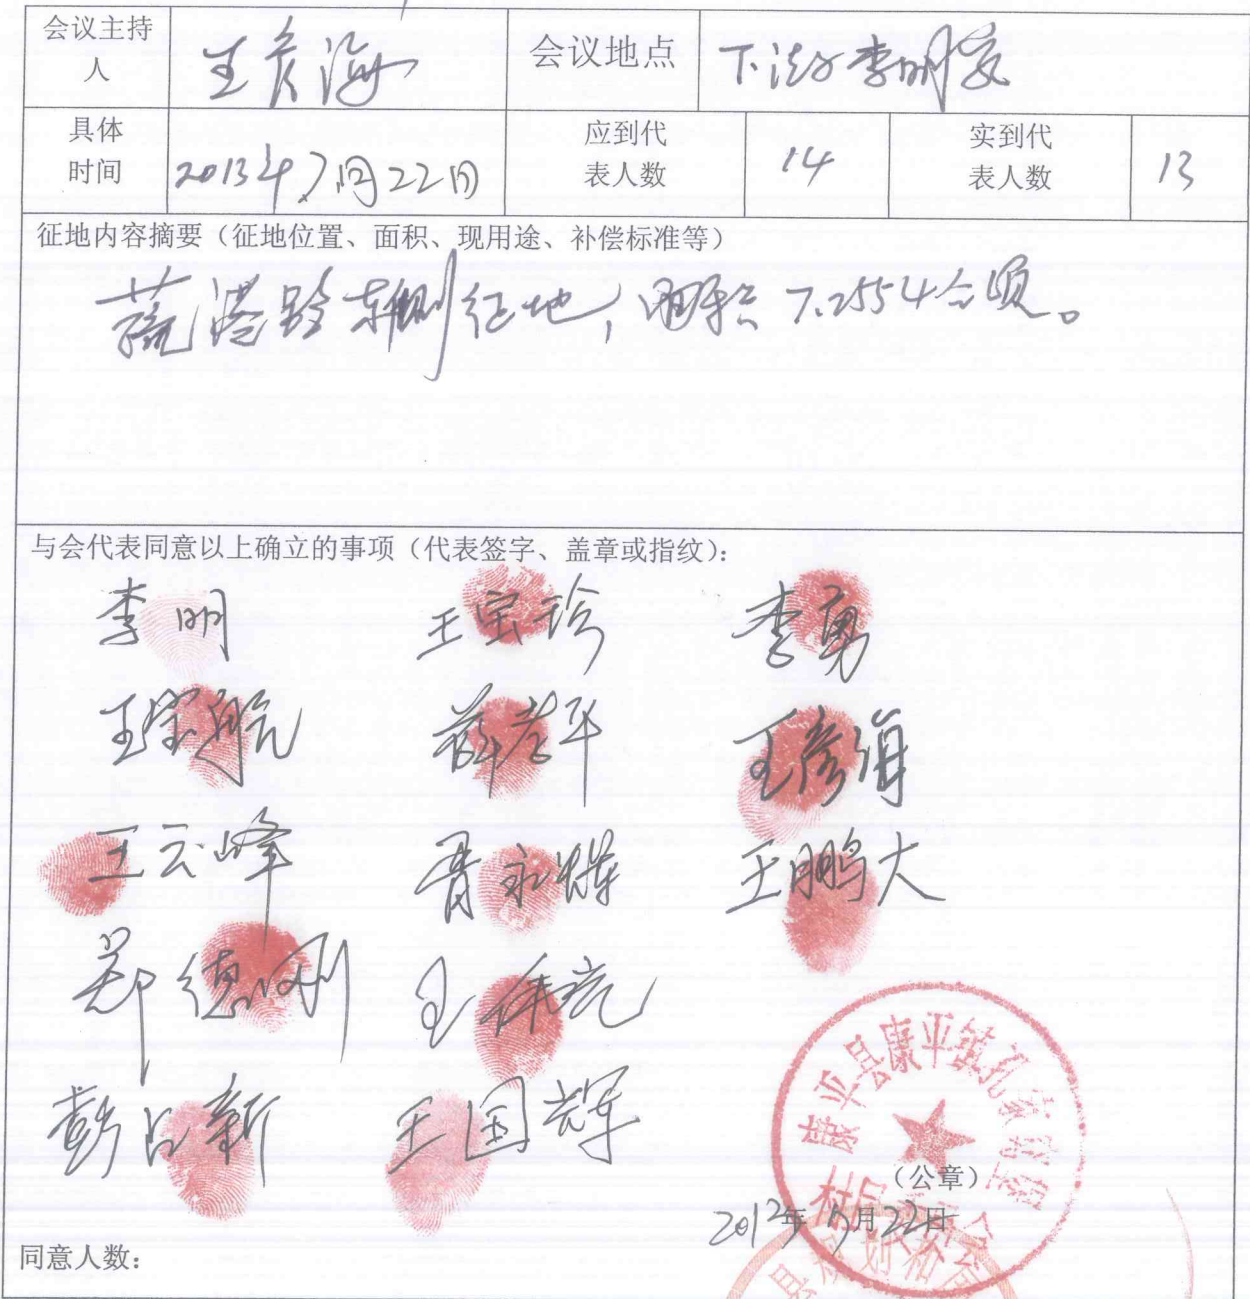 会议主持人
王彦海
会议地点
下洼子李明家
具体时间
2013年7月22日
应到代表人数
14
实到代表人数
13
征地内容摘要（征地位置、面积、现用途、补偿标准等）
东侧征地，面积 7.2554公顷。
与会代表同意以上确立的事项（代表签字、盖章或指纹）：
李明 王宝珍 李勇
王宝航 王彦海
王云峰 王鹏大
郑德刚 王伟亮
王国辉
康平县康平镇孔家窝堡村民委员会
（公章）
年 月22日
同意人数：